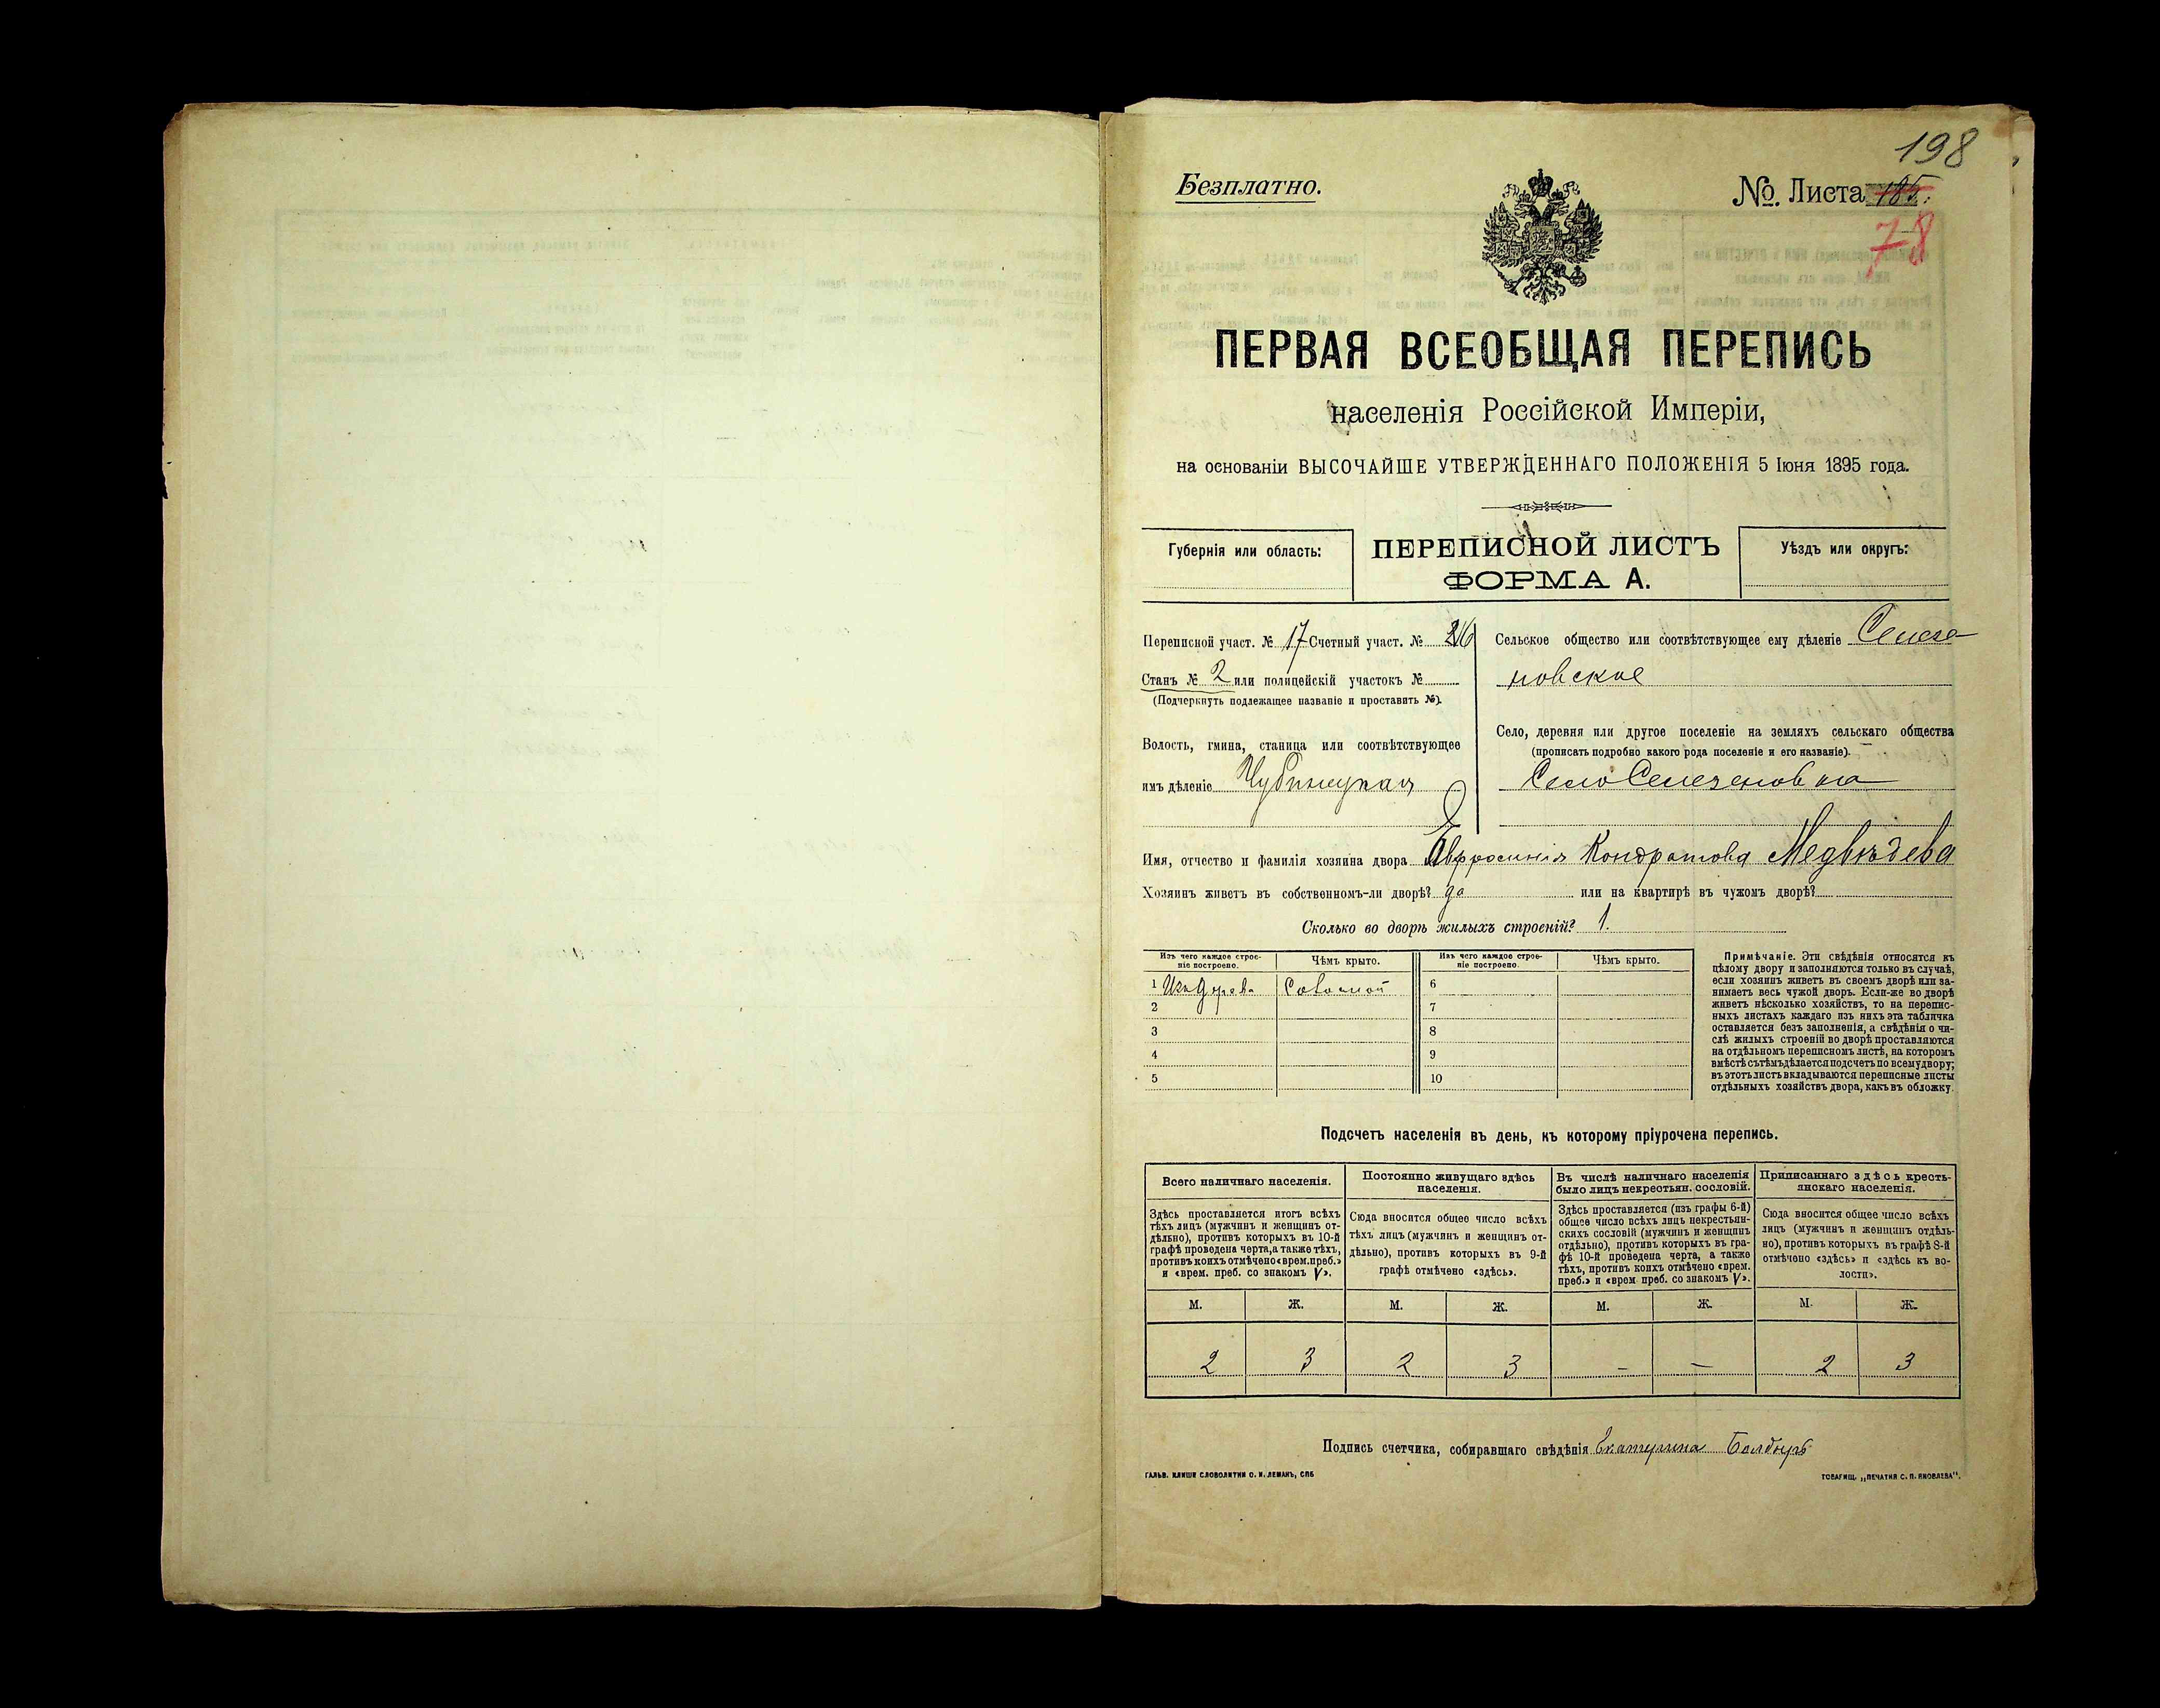 198
Безплатно.
№ Листа 185.
78
ПЕРВАЯ ВСЕОБЩАЯ ПЕРЕПИСЬ
населенія Россійской Имперіи,
на основаніи ВЫСОЧАЙШЕ УТВЕРЖДЕННАГО ПОЛОЖЕНІЯ 5 Іюня 1895 года.
Губернія или область:
ПЕРЕПИСНОЙ ЛИСТЪ
ФОРМА А.
Уѣздъ или округъ:
Переписной участ. № 17 Счетный участ. №
Станъ № 2 или полицейскій участокъ №
(Подчеркнуть подлежащее названіе и проставить №).
Волость, гмина, станица или соотвѣтствующее
имъ дѣленіе
Сельское общество или соотвѣтствующее ему дѣленіе Селезе
новское
Село, деревня или другое поселеніе на земляхъ сельскаго общества
(прописать подробно какого рода поселеніе и его названіе).
Село Селезеновка
Имя, отчество и фамилія хозяина двора Евфросинія Кондратова Медвѣдева
Хозяинъ живетъ въ собственномъ-ли дворѣ? да или на квартирѣ въ чужомъ дворѣ?
Сколько во дворѣ жилыхъ строеній? 1.
Изъ чего каждое строе-
ніе построено.
Чѣмъ крыто.
Изъ чего каждое строе-
ніе построено.
Чѣмъ крыто.
1 Изъ дерева Соломой 6
2 7
3 8
4 9
5 10
Примѣчаніе. Эти свѣдѣнія относятся къ
цѣлому двору и заполняются только въ случаѣ,
если хозяинъ живетъ въ своемъ дворѣ или за-
нимаетъ весь чужой дворъ. Если-же во дворѣ
живетъ нѣсколько хозяйствъ, то на перепис-
ныхъ листахъ каждаго изъ нихъ эта табличка
оставляется безъ заполненія, а свѣдѣнія о чи-
слѣ жилыхъ строеній во дворѣ проставляются
на отдѣльномъ переписномъ листѣ, на которомъ
вмѣстѣ съ тѣмъ дѣлается подсчетъ по всему двору;
въ этотъ листъ вкладываются переписные листы
отдѣльныхъ хозяйствъ двора, какъ въ обложку.
Подсчетъ населенія въ день, къ которому пріурочена перепись.
Всего наличнаго населенія.
Постоянно живущаго здѣсь
населенія.
Въ числѣ наличнаго населенія
было лицъ некрестьян. сословій.
Приписаннаго здѣсь кресть-
янскаго населенія.
Здѣсь проставляется итогъ всѣхъ
тѣхъ лицъ (мужчинъ и женщинъ от-
дѣльно), противъ которыхъ въ 10-й
графѣ проведена черта, а также тѣхъ,
противъ коихъ отмѣчено «врем. преб.»
и «врем. преб. со знакомъ V».
Сюда вносится общее число всѣхъ
тѣхъ лицъ (мужчинъ и женщинъ от-
дѣльно), противъ которыхъ въ 9-й
графѣ отмѣчено «здѣсь».
Здѣсь проставляется (изъ графы 6-й)
общее число всѣхъ лицъ некрестьян-
скихъ сословій (мужчинъ и женщинъ
отдѣльно), противъ которыхъ въ гра-
фѣ 10-й проведена черта, а также
тѣхъ, противъ коихъ отмѣчено «врем.
преб.» и «врем. преб. со знакомъ V».
Сюда вносится общее число всѣхъ
лицъ (мужчинъ и женщинъ отдѣль-
но), противъ которыхъ въ графѣ 8-й
отмѣчено «здѣсь» и «здѣсь къ во-
лости».
М. Ж. М. Ж. М. Ж. М. Ж.
2 3 2 3 – – 2 3
Подпись счетчика, собиравшаго свѣдѣнія Екатерина Болдырь
ГАЛЬВ. КЛИШЕ СЛОВОЛИТНИ О. И. ЛЕМАНЪ, СПБ
ТОВАРИЩ. „ПЕЧАТНЯ С. П. ЯКОВЛЕВА".